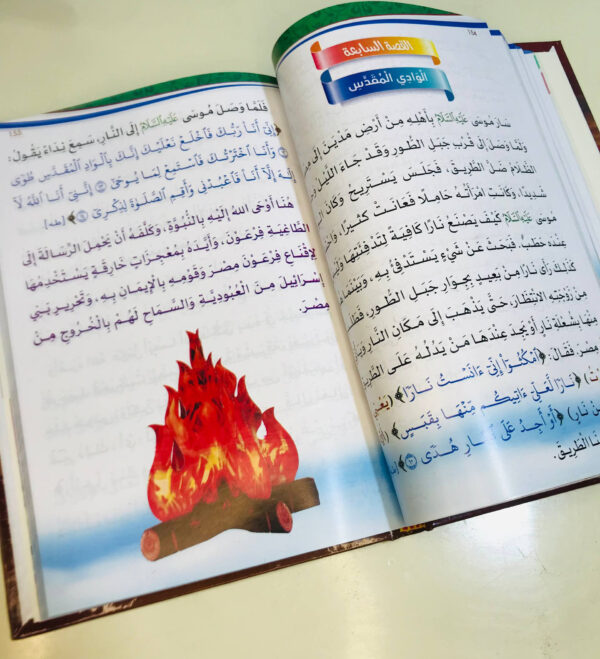 ١٥٤
القصة السابعة
الْوَادِي الْمُقَدَّس
سَارَ مُوسَى عَلَيْهِ السَّلَامُ بِأَهْلِهِ مِنْ أَرْضِ مَدْيَنَ إِلَى
وَلَمَّا وَصَلَ إِلَى قُرْبِ جَبَلِ الطُّورِ وَقَدْ جَاءَ اللَّيْلُ
الظَّلَامُ ضَلَّ الطَّرِيقَ، فَجَلَسَ يَسْتَرِيحُ وَكَانَ
شَدِيدًا، وَكَانَتِ امْرَأَتُهُ حَامِلًا فَعَانَتْ كَثِيرًا،
مُوسَى عَلَيْهِ السَّلَامُ كَيْفَ يَصْنَعُ نَارًا كَافِيَةً لِتَدْفِئَتِهَا
عِنْدَهُ حَطَبٌ، فَبَحَثَ عَنْ شَيْءٍ يَسْتَدْفِئُ بِهِ، وَبَيْنَمَا
كَذَلِكَ رَأَى نَارًا مِنْ بَعِيدٍ بِجِوَارِ جَبَلِ الطُّورِ،
مِنْ زَوْجَتِهِ الِانْتِظَارَ حَتَّى يَذْهَبَ إِلَى مَكَانِ النَّارِ
مِنْهَا بِشُعْلَةِ نَارٍ أَوْ يَجِدَ عِنْدَهَا مَنْ يَدُلُّهُ عَلَى
مِصْرَ، فَقَالَ: ﴿امْكُثُوا إِنِّي ءَانَسْتُ نَارًا﴾ (يَعْنِي
﴿نَارًا لَعَلِّي ءَاتِيكُمْ مِنْهَا بِقَبَسٍ﴾
نَارٍ) ﴿أَوْ أَجِدُ عَلَى النَّارِ هُدًى ١٠﴾
الطَّرِيقَ.
١٥٥
فَلَمَّا وَصَلَ مُوسَى عَلَيْهِ السَّلَامُ إِلَى النَّارِ، سَمِعَ نِدَاءً يَقُولُ:
﴿إِنِّي أَنَا رَبُّكَ فَاخْلَعْ نَعْلَيْكَ إِنَّكَ بِالْوَادِ الْمُقَدَّسِ طُوًى
١٢ وَأَنَا اخْتَرْتُكَ فَاسْتَمِعْ لِمَا يُوحَى ١٣ إِنَّنِي أَنَا اللَّهُ لَا
إِلَهَ إِلَّا أَنَا فَاعْبُدْنِي وَأَقِمِ الصَّلَوٰةَ لِذِكْرِي ١٤﴾ [طه]
هُنَا أَوْحَى اللهُ إِلَيْهِ بِالنُّبُوَّةِ، وَكَلَّفَهُ أَنْ يَحْمِلَ الرِّسَالَةَ إِلَى
الطَّاغِيَةِ فِرْعَوْنَ، وَأَيَّدَهُ بِمُعْجِزَاتٍ خَارِقَةٍ يَسْتَخْدِمُهَا
لِإِقْنَاعِ فِرْعَوْنِ مِصْرَ وَقَوْمِهِ بِالْإِيمَانِ بِهِ، وَتَحْرِيرِ بَنِي
إِسْرَائِيلَ مِنَ الْعُبُودِيَّةِ وَالسَّمَاحِ لَهُمْ بِالْخُرُوجِ مِنْ
مِصْرَ.